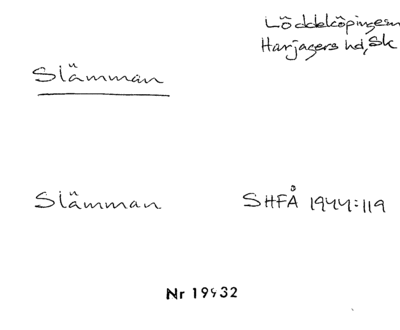 Löddeköpingesn
Harjagers hd, Sk
Slämman
Slämman SHFÅ 1944:119
Nr 19932